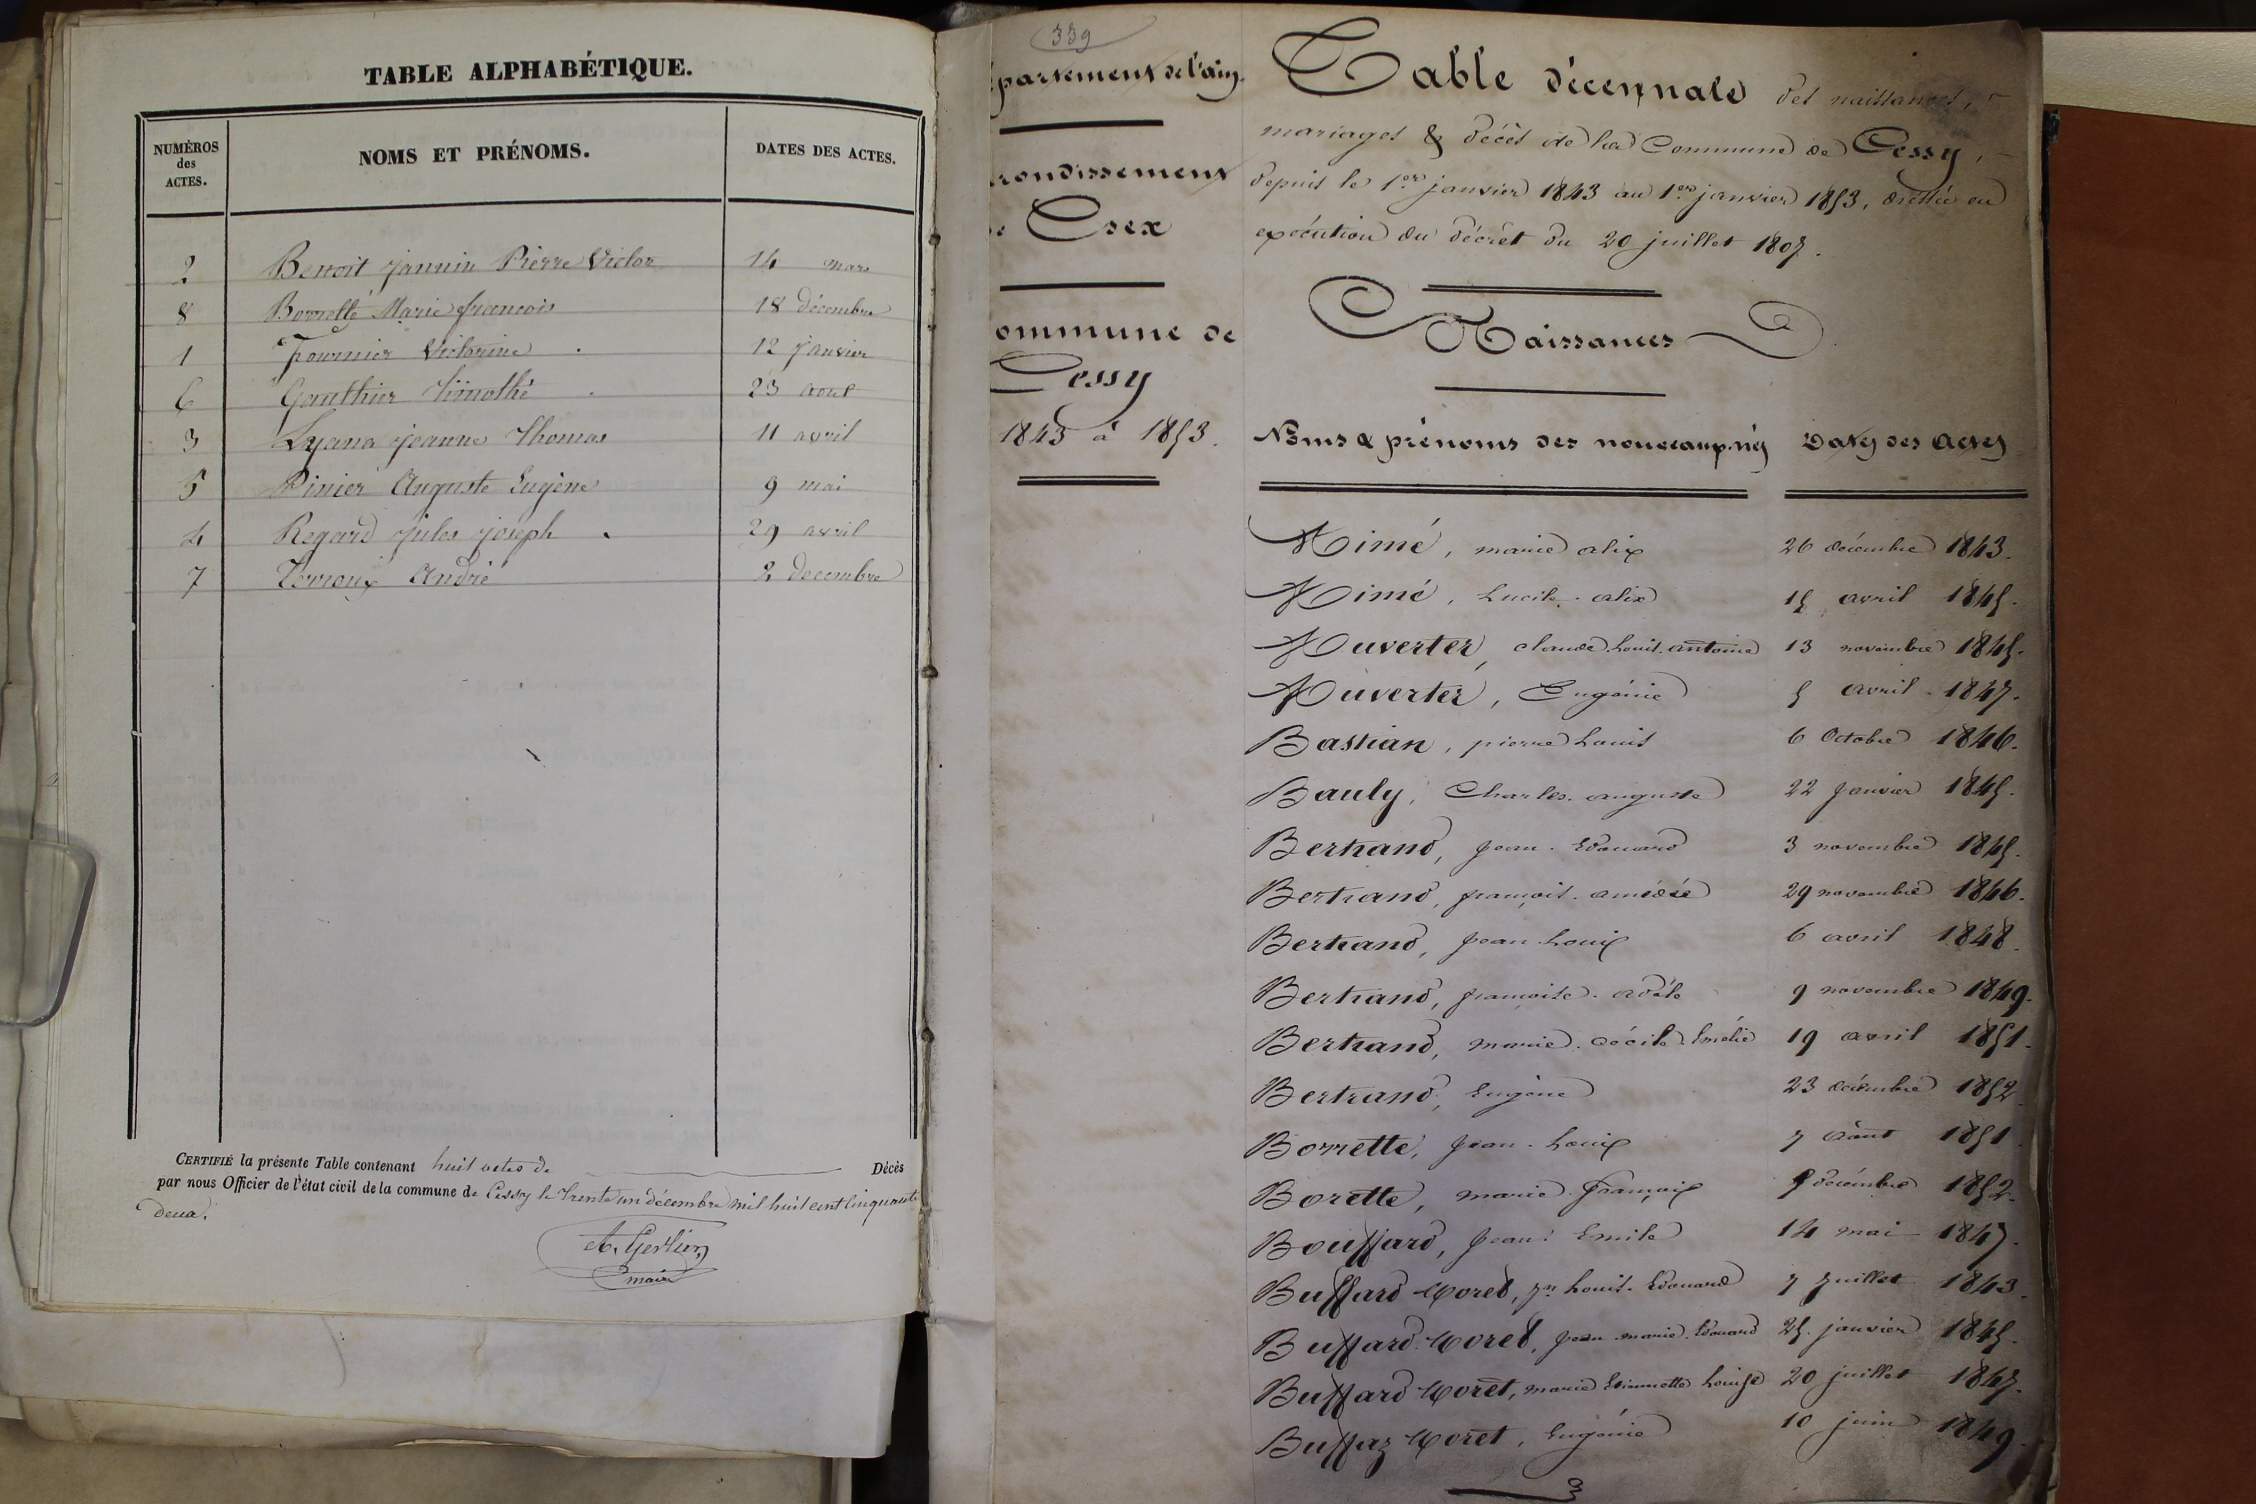 TABLE ALPHABÉTIQUE.
NUMÉROS des ACTES.
NOMS ET PRÉNOMS.
DATES DES ACTES.
2 Benoit Jannin Pierre Victor 14 mars
8 Borrette Marie françois 18 décembre
1 Fournier Victorine 12 janvier
6 Gauthier Timothé 23 aout
3 Lyana Jeanne Thomas 11 avril
5 Pinier Auguste Eugène 9 mai
4 Regard Jules Joseph 29 avril
7 Verroux André 2 decembre
CERTIFIÉ la présente Table contenant huit actes de Décès
par nous Officier de l'état civil de la commune de Cessy le trente un décembre mil huit cent cinquante
deux.
maire
339
épartement de l'ain.
rondissement
de Gex
ommune de
Cessy
1843 à 1853.
Table décennale des naissances,
mariages & décès de la Commune de Cessy,
depuis le 1er janvier 1843 au 1er janvier 1853, dressée en
exécution du décret du 20 juillet 1807.
Naissances
Noms & prénoms des nouveaux-nés Dates des actes
Aimé, marie alix 26 décembre 1843.
Aimé, Lucile alix 15 avril 1845.
Auverter, claude Louis antoine 13 novembre 1845.
Auverter, Eugénie 5 avril 1847.
Bastian, pierre Louis 6 Octobre 1846.
Bauly, Charles auguste 22 janvier 1845.
Bertrand, jean Edouard 3 novembre 1845.
Bertrand, françois amédée 29 novembre 1846.
Bertrand, jean Louis 6 avril 1848.
Bertrand, françoise adèle 9 novembre 1849.
Bertrand, marie cécile Emélie 19 avril 1851.
Bertrand, Eugène 23 décembre 1852.
Borrette, jean Louis 7 août 1851.
Borette, marie françois décembre 1852.
Bouffard, jean Emile 14 mai 1847.
Buffard Moret, jn Louis Edouard 7 juillet 1843.
Buffard Moret, jean marie Edouard 25 janvier 1845.
Buffard Moret, marie Etiennette Louise 20 juillet 1847.
Buffaz Moret, Eugénie 10 juin 1849.